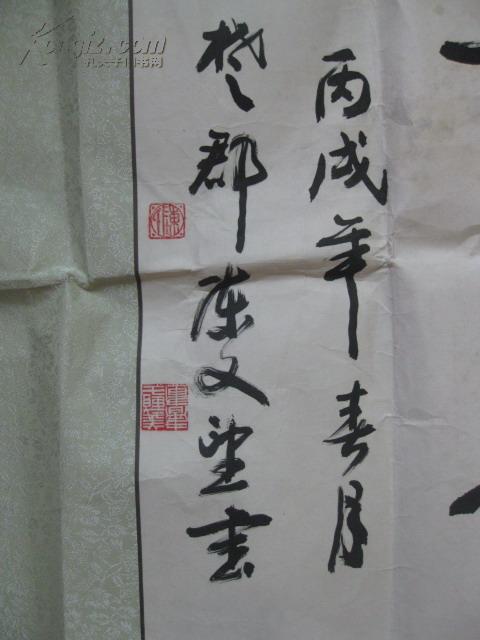 丙戌年春月
楚郡陈文望书
Kongfz.com
孔夫子旧书网